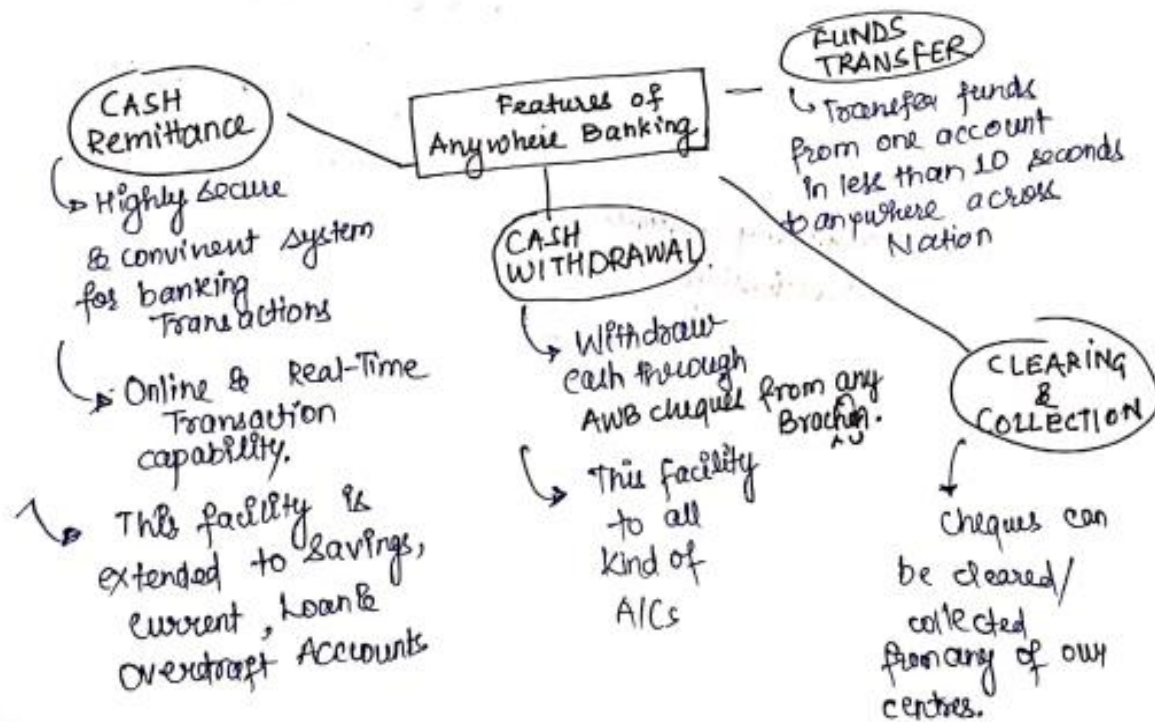 Features of
Anywhere Banking
CASH
Remittance
Highly secure
& convinent system
for banking
Transactions
Online & Real-Time
Transaction
capability.
This facility is
extended to savings,
current, Loan &
overdraft Accounts
CASH
WITHDRAWAL.
Withdraw
cash through
AWB cheques from any
This facility
to all
Kind of
A/Cs
FUNDS
TRANSFER
Transfer funds
from one account
in less than 10 seconds
to anywhere across
Nation
CLEARING
&
COLLECTION
Cheques can
be cleared/
collected
from any of our
centres.